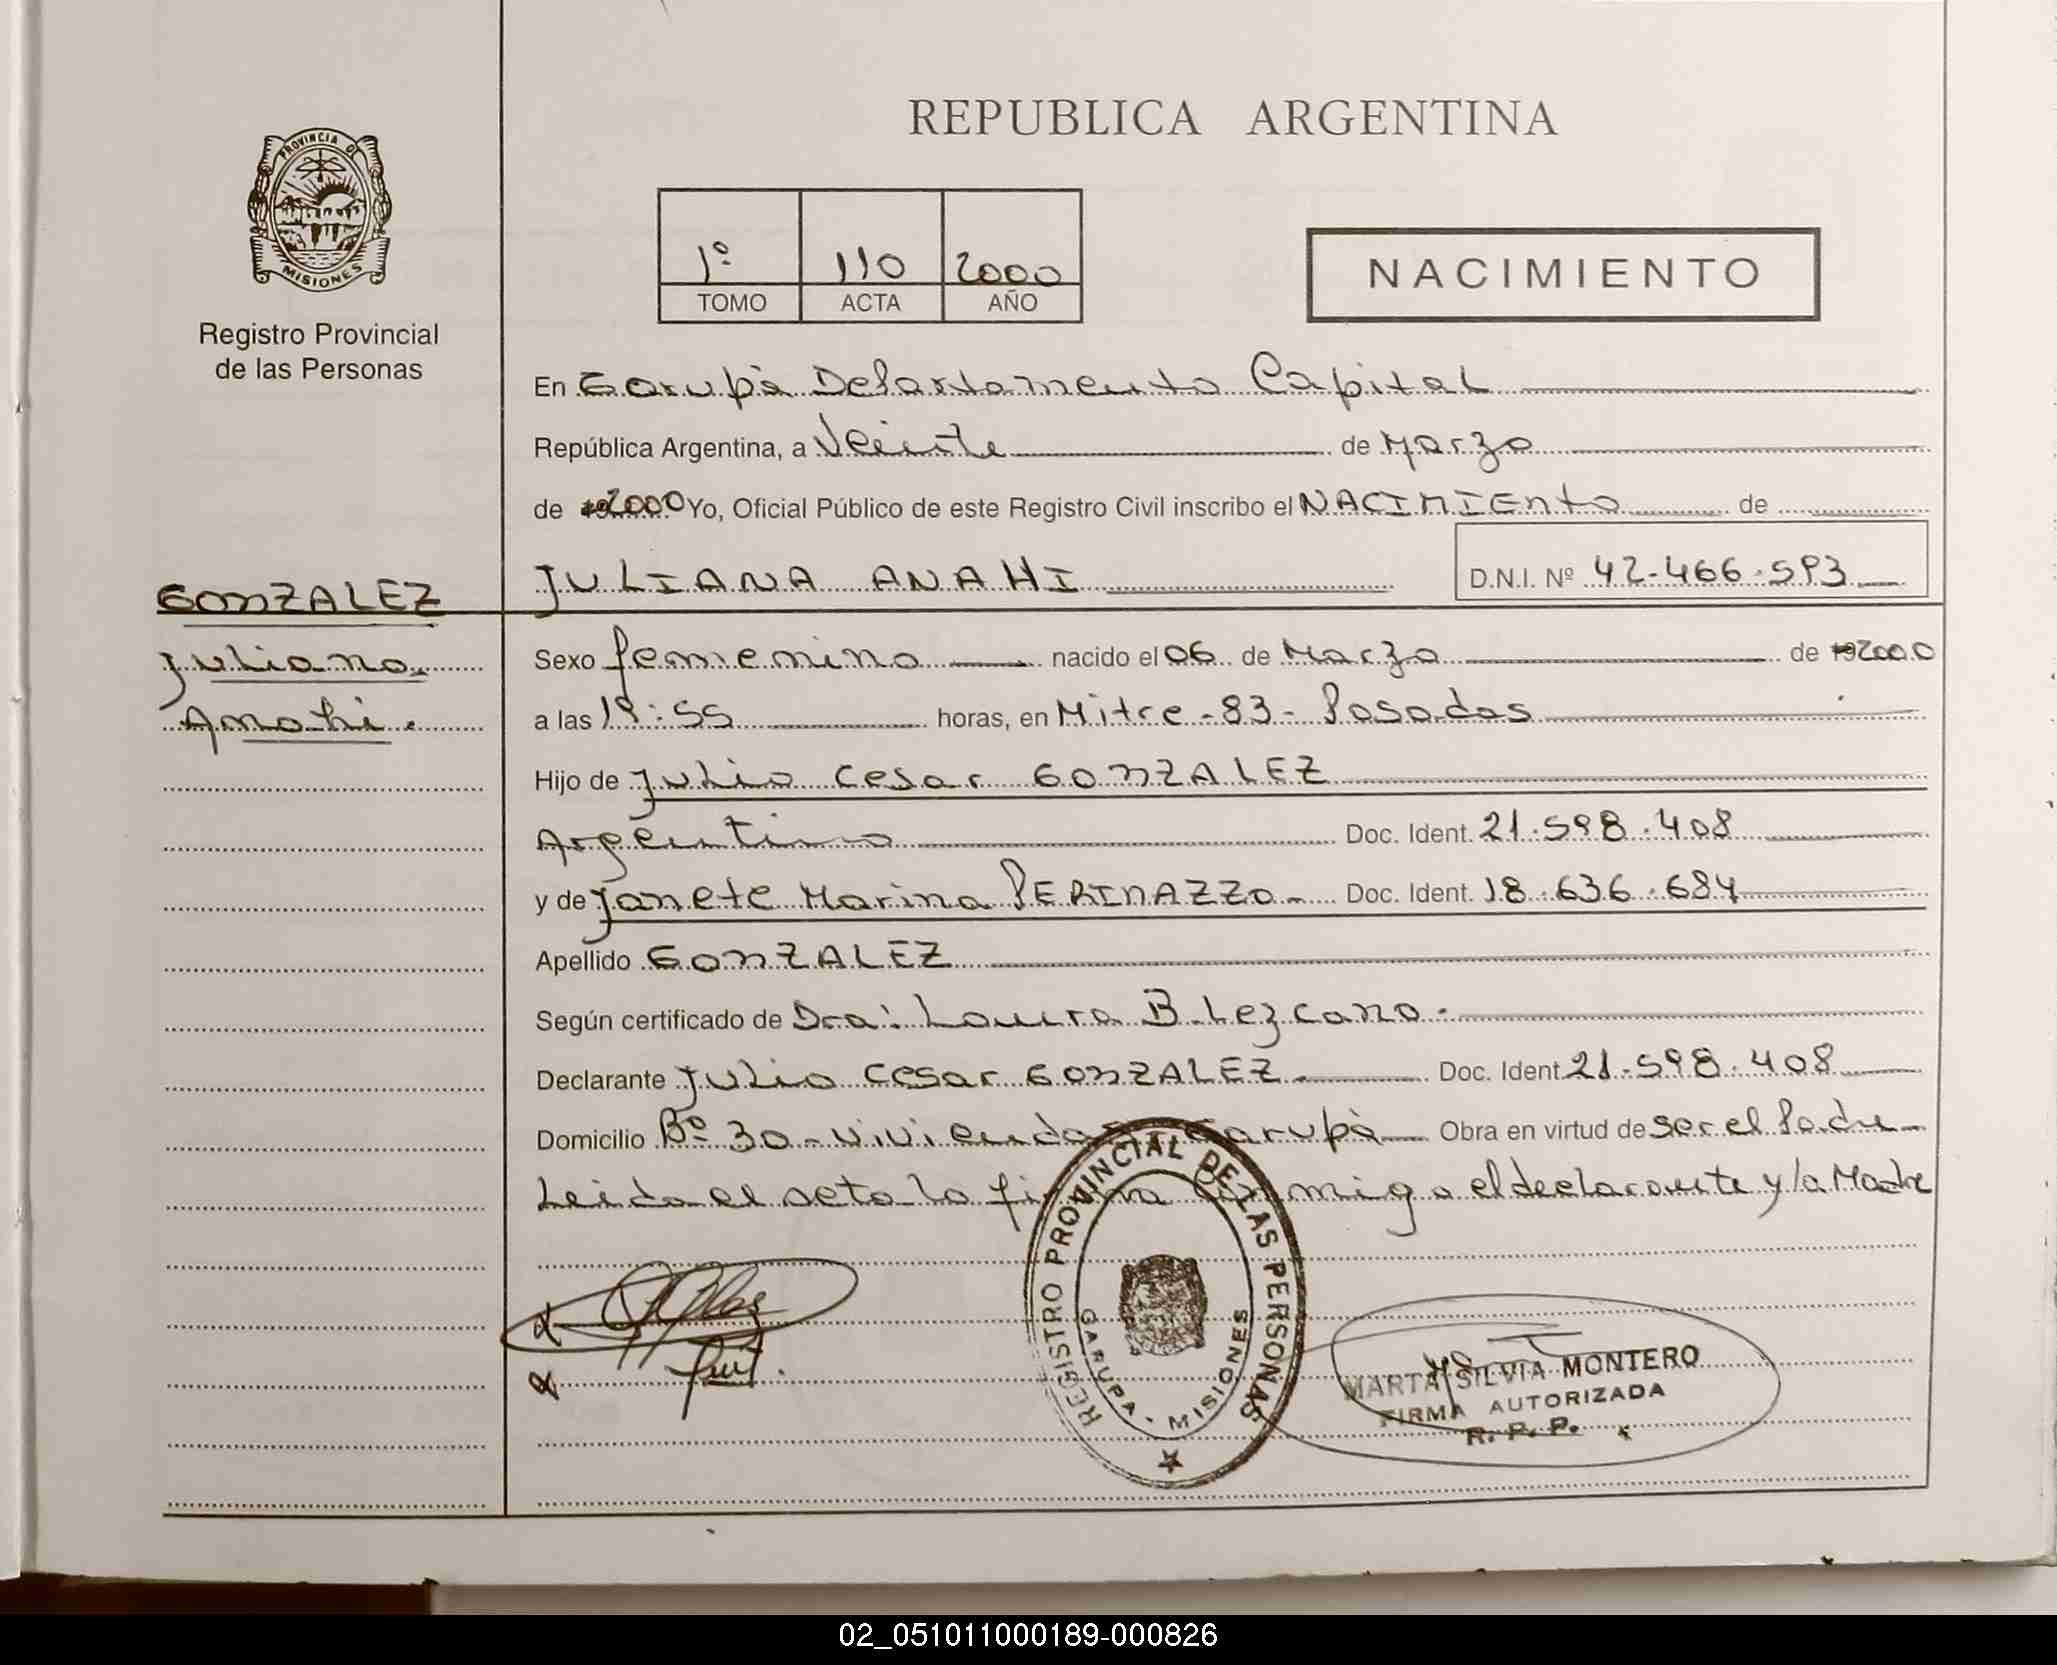 REPUBLICA ARGENTINA
PROVINCIA DE
MISIONES
Registro Provincial
de las Personas
1º 110 2000
TOMO ACTA AÑO
NACIMIENTO
En Garupà Departamento Capital
República Argentina, a Veinte de Marzo
de 192000 Yo, Oficial Público de este Registro Civil inscribo el NACIMIENTO de
JULIANA ANAHI D.N.I. Nº 42.466.593
GONZALEZ
Juliana
Anahi.
Sexo femenino nacido el 06 de Marzo de 192000
a las 19:55 horas, en Mitre - 83 - Posadas
Hijo de Julio Cesar GONZALEZ
Argentino Doc. Ident. 21.598.408
y de Janete Marina PERINAZZO Doc. Ident. 18.636.684
Apellido GONZALEZ
Según certificado de Dra: Laura B. Lezcano.
Declarante Julio Cesar GONZALEZ Doc. Ident. 21.598.408
Domicilio Bº 30 - viviendas Garupà Obra en virtud de ser el Padre
Leida el acta la firma conmigo el declarante y la Madre
REGISTRO PROVINCIAL DE LAS PERSONAS
GARUPA - MISIONES
MARTA SILVIA MONTERO
FIRMA AUTORIZADA
R. P. P.
02_051011000189-000826